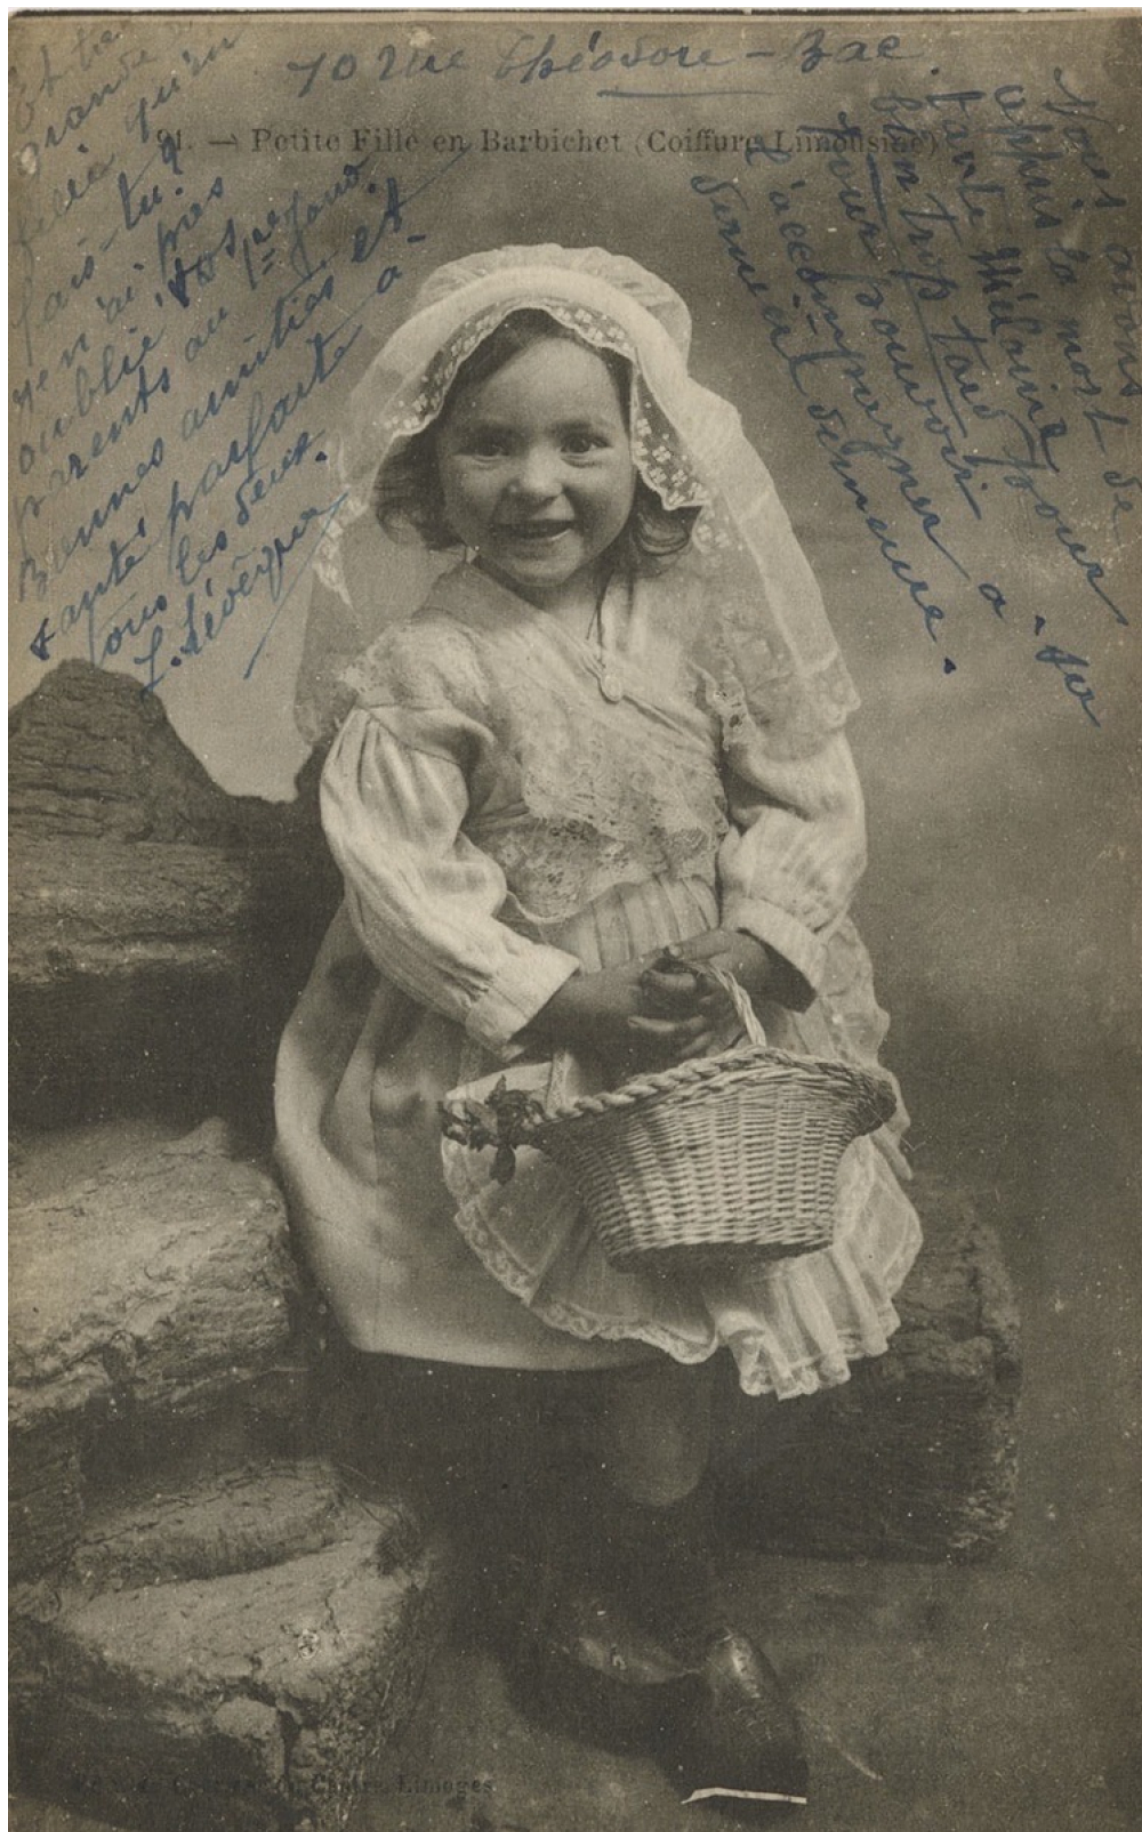 70 rue Théodore - Bac.
91. — Petite Fille en Barbichet (Coiffure Limousine)
Et ta
grande
fille qu'en
fais-tu?
je n'ai pas
oublié, vos
parents au 1er Janv.
Bonnes amitiés et
santé parfaite à
tous les deux.
Nous avons
appris la mort de
tante Mélaine
bien trop tard pour
pouvoir
l'accompagner à sa
dernière demeure.
Centre, Limoges